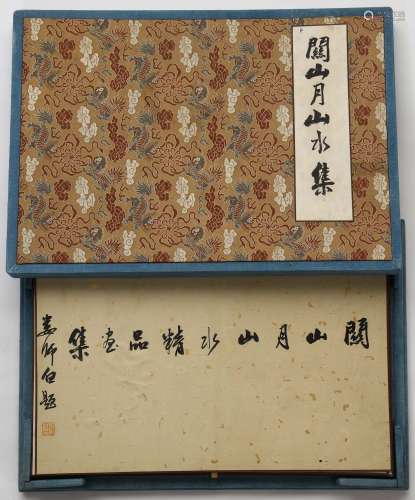 關山月山水集
關山月山水精品畫集
婁師白題